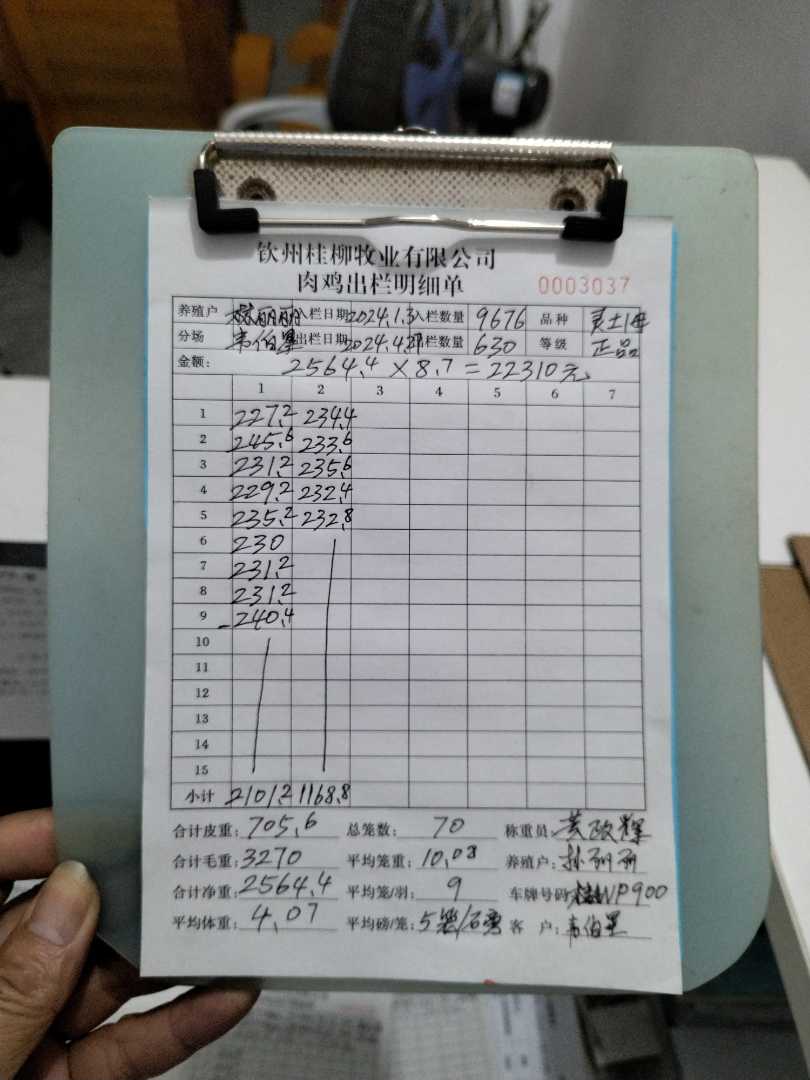 钦州桂柳牧业有限公司
肉鸡出栏明细单
0003037
养殖户 丽丽 入栏日期 2024.1.3 入栏数量 9676 品种
分场 韦伯星 出栏日期 2024.4. 出栏数量 630 等级 正品
金额: 2564.4×8.7=22310元
1 2 3 4 5 6 7
1 227.2 234.4
2 245.6 233.6
3 231.2 235.6
4 229.2 232.4
5 235.2 232.8
6 230
7 231.2
8 231.2
9 240.4
10
11
12
13
14
15
小计 2101.2 1168.8
合计皮重: 705.6 总笼数: 70 称重员: 黄政辉
合计毛重: 3270 平均笼重: 10.08 养殖户:
合计净重: 2564.4 平均笼/羽: 9 车牌号码: WP900
平均体重: 4.07 平均磅/笼: 5笼/石 客 户: 韦伯星